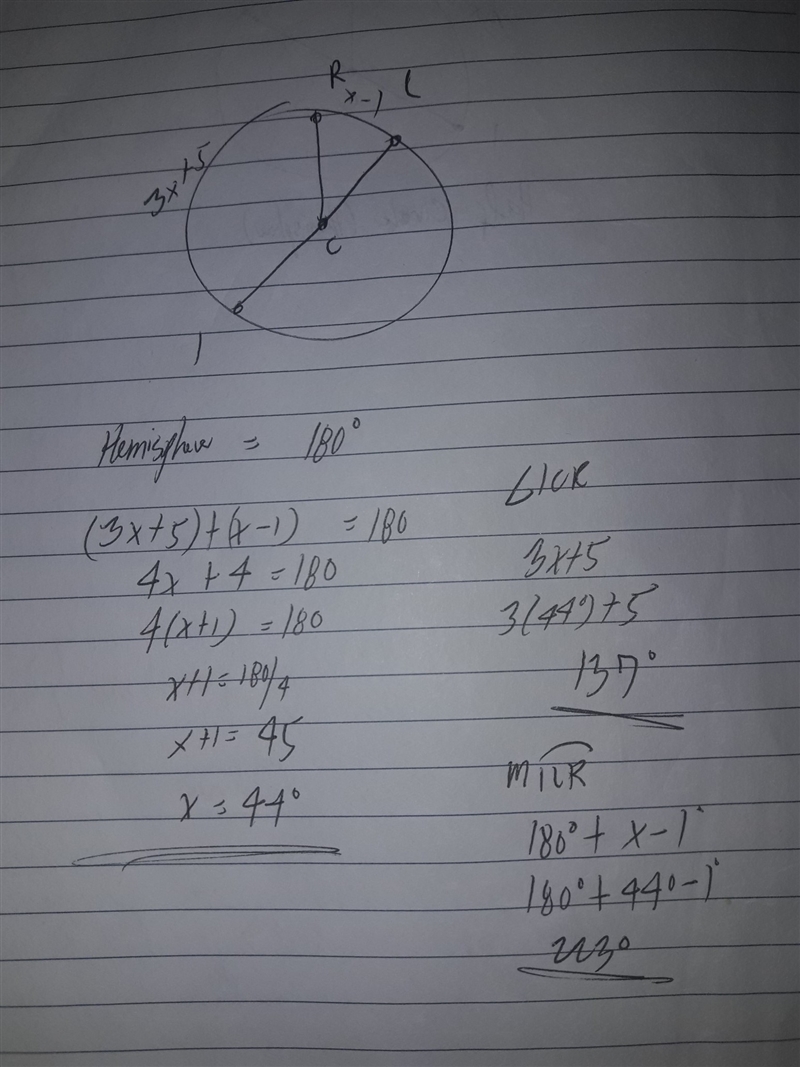 R
x-1
L
3x+5
C
1
Hemisphere = 180°
(3x+5)+(x-1) = 180
4x + 4 = 180
4(x+1) = 180
x+1 = 180/4
x+1 = 45
x = 44°
3x+5
3(44°)+5
137°
180° + x-1°
180° + 44°-1°
223°